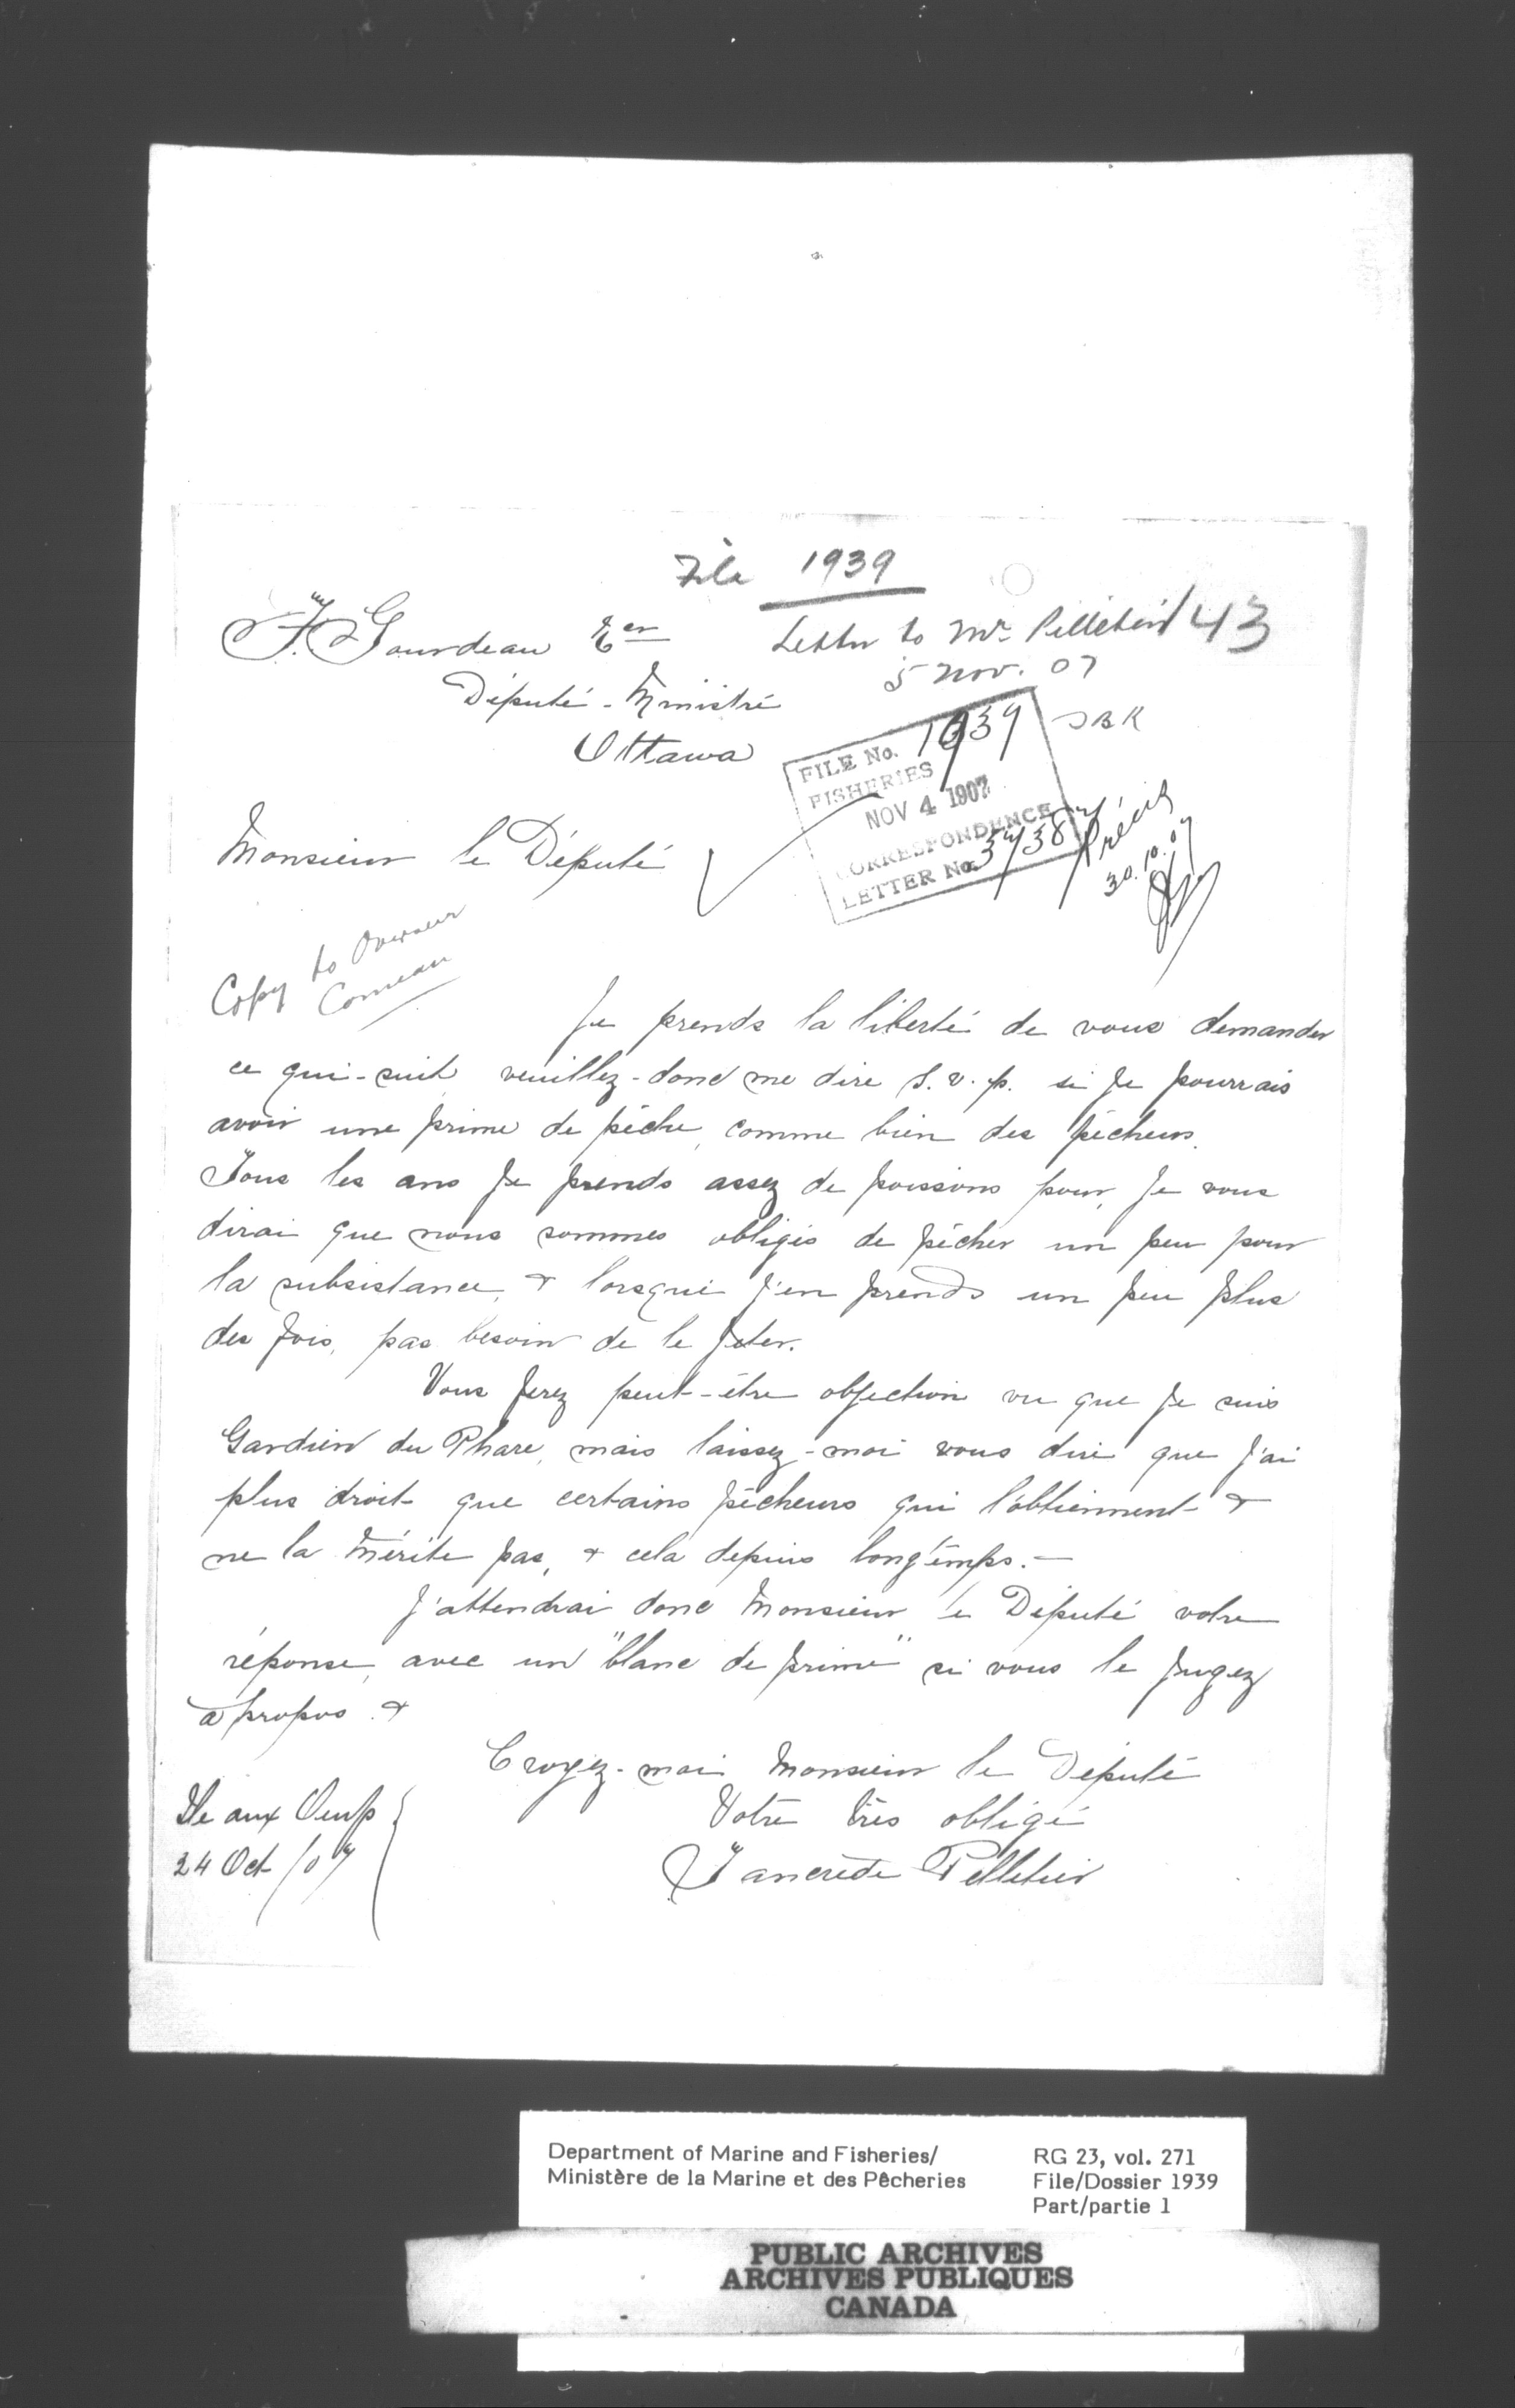 File 1939
F. Gourdeau Ecr
Letter to Mr Pelletier 43
5 Nov. 07
Député-Ministre
JBK
Ottawa
FILE No. 1939
FISHERIES
NOV 4 1907
CORRESPONDENCE
LETTER No.
30.10.07
Monsieur le Député
Copy to Overseer
Comeau
Je prends la liberté de vous demander
ce qui-suit veuillez-donc me dire S.v.p. si je pourrais
avoir une prime de pêche, comme bien des pêcheurs.
Tous les ans je prends assez de poissons pour, je vous
dirai que nous sommes obligés de pêcher un peu pour
la subsistance, & lorsque j'en prends un peu plus
des fois, pas besoin de le jeter.
Vous ferez peut-être objection vu que je suis
Gardien du Phare, mais laissez-moi vous dire que j'ai
plus droit que certains pêcheurs qui l'obtiennent &
ne la mérite pas, & cela depuis longtemps.—
J'attendrai donc Monsieur le Député votre
réponse, avec un "blanc de prime" si vous le jugez
à propos. &
Croyez-moi Monsieur le Député
Votre très obligé
Tancrède Pelletier
Ile aux Oeufs
24 Oct/07
Department of Marine and Fisheries/
Ministère de la Marine et des Pêcheries
RG 23, vol. 271
File/Dossier 1939
Part/partie 1
PUBLIC ARCHIVES
ARCHIVES PUBLIQUES
CANADA